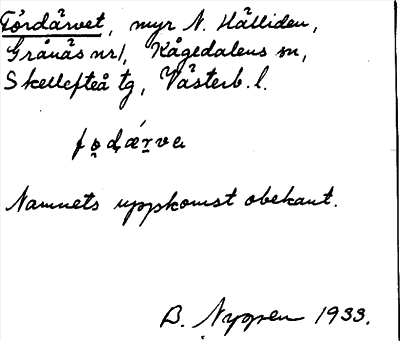 Fördärvet, myr N. Hälliden,
Gränäs nr 1, Kågedalens sn,
Skellefteå tg, Västerb. l.
fo̤ḍǽr̤va
Namnets uppkomst obekant.
B. Nygren 1933.